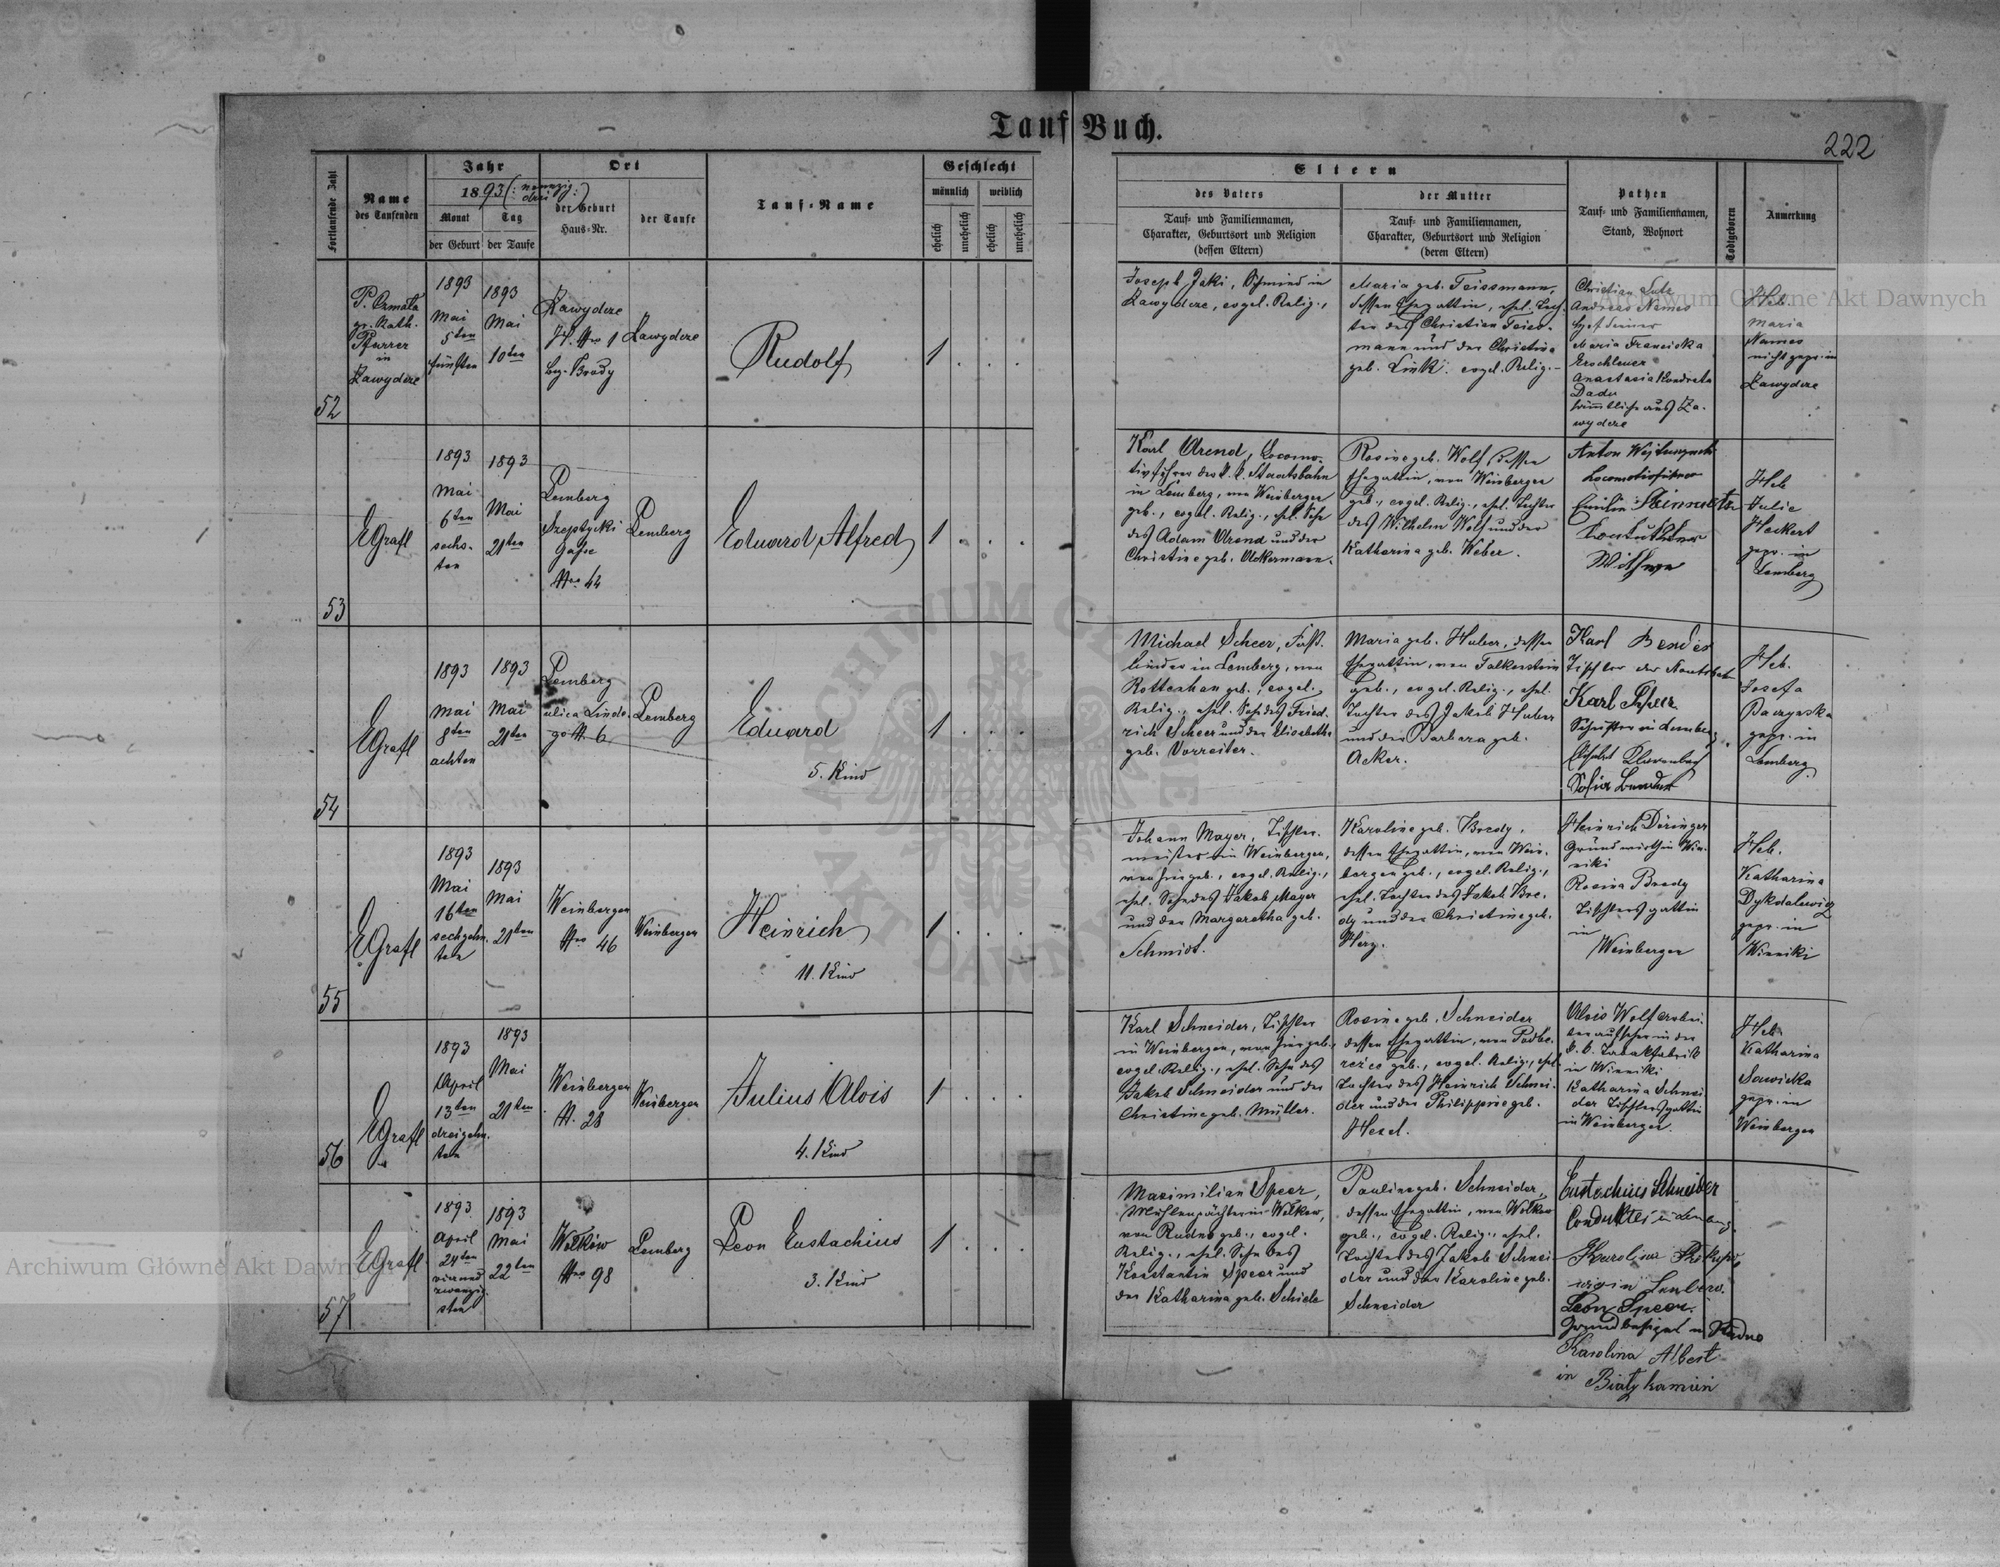 Tauf Buch.
222
Fortlaufende Zahl
Name
des Taufenden
Jahr
1893 (: neunzig drei :)
Monat
Tag
der Geburt
der Taufe
Ort
der Geburt
Haus-Nr.
der Taufe
Tauf-Name
Geschlecht
männlich
weiblich
ehelich
unehelich
ehelich
unehelich
Eltern
des Vaters
Tauf- und Familiennamen,
Charakter, Geburtsort und Religion
(dessen Eltern)
der Mutter
Tauf- und Familiennamen,
Charakter, Geburtsort und Religion
(deren Eltern)
Pathen
Tauf- und Familiennamen,
Stand, Wohnort
Todtgeboren
Anmerkung
52
gr. Kath.
Pfarrer
in
Zawydcze
1893
Mai
5ten
fünften
1893
Mai
10ten
Zawydcze
Nro 1
Brody
Zawydcze
Rudolf
1
Joseph Jaki, Schmied in
Zawydcze, evgel. Relig.,
Maria geb. Feissmann,
dessen Ehegattin, ehel. Toch-
ter des Christian Feiss-
mann und der Christina
geb. Link. evgel. Relig.
Christian
Andreas Names
Maria Franciska
Anastasia
sämmtliche aus Za-
wydcze
Heb.
Maria
Names
nicht gepr. in
Zawydcze
53
EGrafl
1893
Mai
6ten
sechs-
ten
1893
Mai
21ten
Lemberg
Szeptycki
Gasse
Nro 42
Lemberg
Eduard Alfred
1
Karl Arend, Locomo-
tivführer der k. k. Staatsbahn
in Lemberg, von Weinbergen
geb., evgel. Relig., ehel. Sohn
des Adam Arend und der
Christine geb. Ackermann.
Rosine geb. Wolf, dessen
Ehegattin, von Weinbergen
geb., evgel. Relig., ehel. Tochter
des Wilhelm Wolf und der
Katharina geb. Weber.
Anton
Locomotivführer
Emilie Steinmetz
Witwe
Heb
Julie
Heckert
gepr. in
Lemberg
54
EGrafl
1893
Mai
8ten
achten
1893
Mai
21ten
Lemberg
ulica Lindego
N. 6
Lemberg
Eduard
5. Kind
1
Michael Scheer, Faß-
binder in Lemberg, von
Rottenhan geb., evgel.
Relig., ehel. Sohn des Fried-
rich Scheer und der Elisabetha
geb. Vorreiter.
Maria geb. Huber, dessen
Ehegattin, von Falkenstein
geb., evgel. Relig., ehel.
Tochter des Jakob Huber
und der Barbara geb.
Acker.
Karl Bender
Tischler der
Karl Scheer
in Lemberg
Sofia
Heb.
Josefa
gepr. in
Lemberg
55
EGrafl
1893
Mai
16ten
sechzehn-
ten
1893
Mai
21ten
Weinbergen
Nro 46
Weinbergen
Heinrich
11. Kind
1
Johann Mayer, Tischler-
meister in Weinbergen,
von hier geb., evgel. Relig.,
ehel. Sohn des Jakob Mayer
und der Margaretha geb.
Schmidt.
Karoline geb. Bredy,
dessen Ehegattin, von Wein-
bergen geb., evgel. Relig.,
ehel. Tochter des Jakob Bre-
dy und der Christine geb.
Herz.
Heinrich Döringer
Grundwirth in Win-
niki
Rosina Bredy
Tischlersgattin
in
Weinbergen
Heb.
Katharina
Dykdalewicz
gepr. in
Winniki
56
EGrafl
1893
April
13ten
dreizehn-
ten
1893
Mai
21ten
Weinbergen
N. 28
Weinbergen
Julius Alois
4. Kind
1
Karl Schneider, Tischler
in Weinbergen, von hier geb.,
evgel. Relig., ehel. Sohn des
Jakob Schneider und der
Christine geb. Müller.
Rosine geb. Schneider
dessen Ehegattin, von Podbe-
rezce geb., evgel. Relig., ehel.
Tochter des Heinrich Schnei-
der und der Philippine geb.
Hexel.
Alois Wolf Arbei-
teraufseher in der
k. k. Tabakfabrik
in Winniki
Katharina Schnei-
der Tischlersgattin
in Weinbergen.
Heb.
Katharina
Sawicka
gepr. in
Weinbergen
57
EGrafl
1893
April
24ten
vierund
zwanzig-
sten
1893
Mai
22ten
Wołków
Nro 98
Lemberg
Leon Eustachius
3. Kind
1
Maximilian Speer,
Mühlenpächter in Wolkow,
von Rudno geb., evgel.
Relig., ehel. Sohn des
Konstantin Speer und
der Katharina geb. Schiele
Pauline geb. Schneider,
dessen Ehegattin, von Wolkow
geb., evgel. Relig., ehel.
Tochter des Jakob Schnei-
der und der Karoline geb.
Schneider
Eustachius Schneider
Condukteur in Lemberg.
Karolina
in Lemberg.
Leon Speer.
Grundbesitzer in Rudno
Karolina Albert
in Biały kamień
Archiwum Główne Akt Dawnych
Archiwum Główne Akt Dawnych
ARCHIWUM GŁÓWNE AKT DAWNYCH